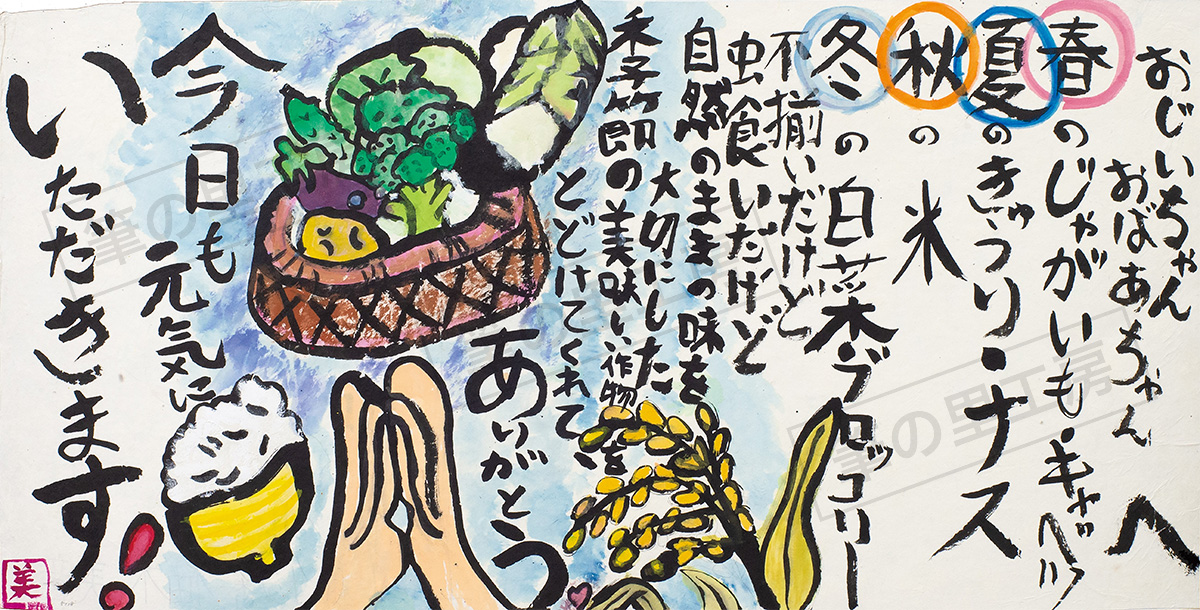 おじいちゃん
おばあちゃんへ
春のじゃがいも・キャベツ
夏のきゅうり・ナス
秋の米
冬の白菜・ブロッコリー
不揃いだけど
虫食いだけど
自然のままの味を
大切にした
季節の美味しい作物を
とどけてくれて、
ありがとう
今日も元気に
いただきます!
美
筆の里工房
筆の里工房
筆の里工房